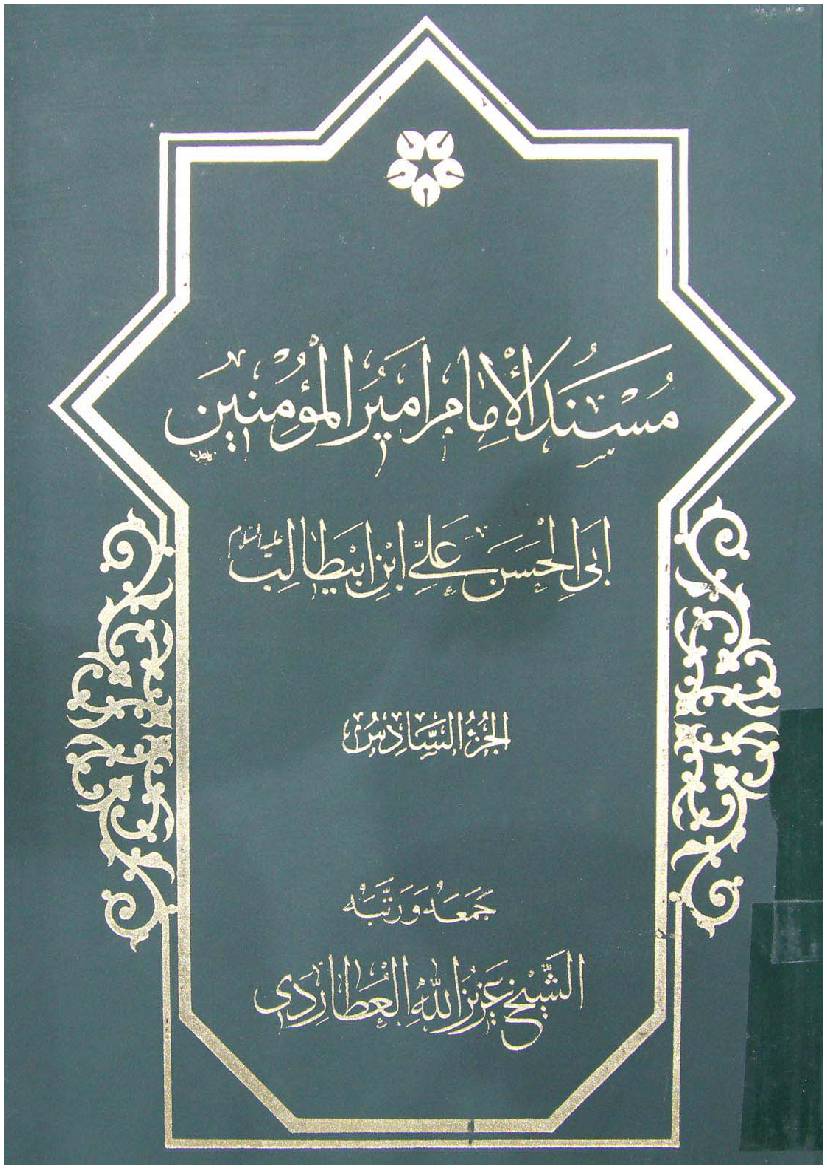 مُسْنَدُ الْإِمَامِ أَمِيرِ الْمُؤْمِنِينَ
أَبِي الْحَسَنِ عَلِيِّ ابْنِ ابيطَالِب عليه السلام
الجُزْءُ السَّادِسُ
جَمَعَهُ وَرَتَّبَهُ
الشَّيْخ عَزِيزُ اللهِ الْعُطَارِدِي